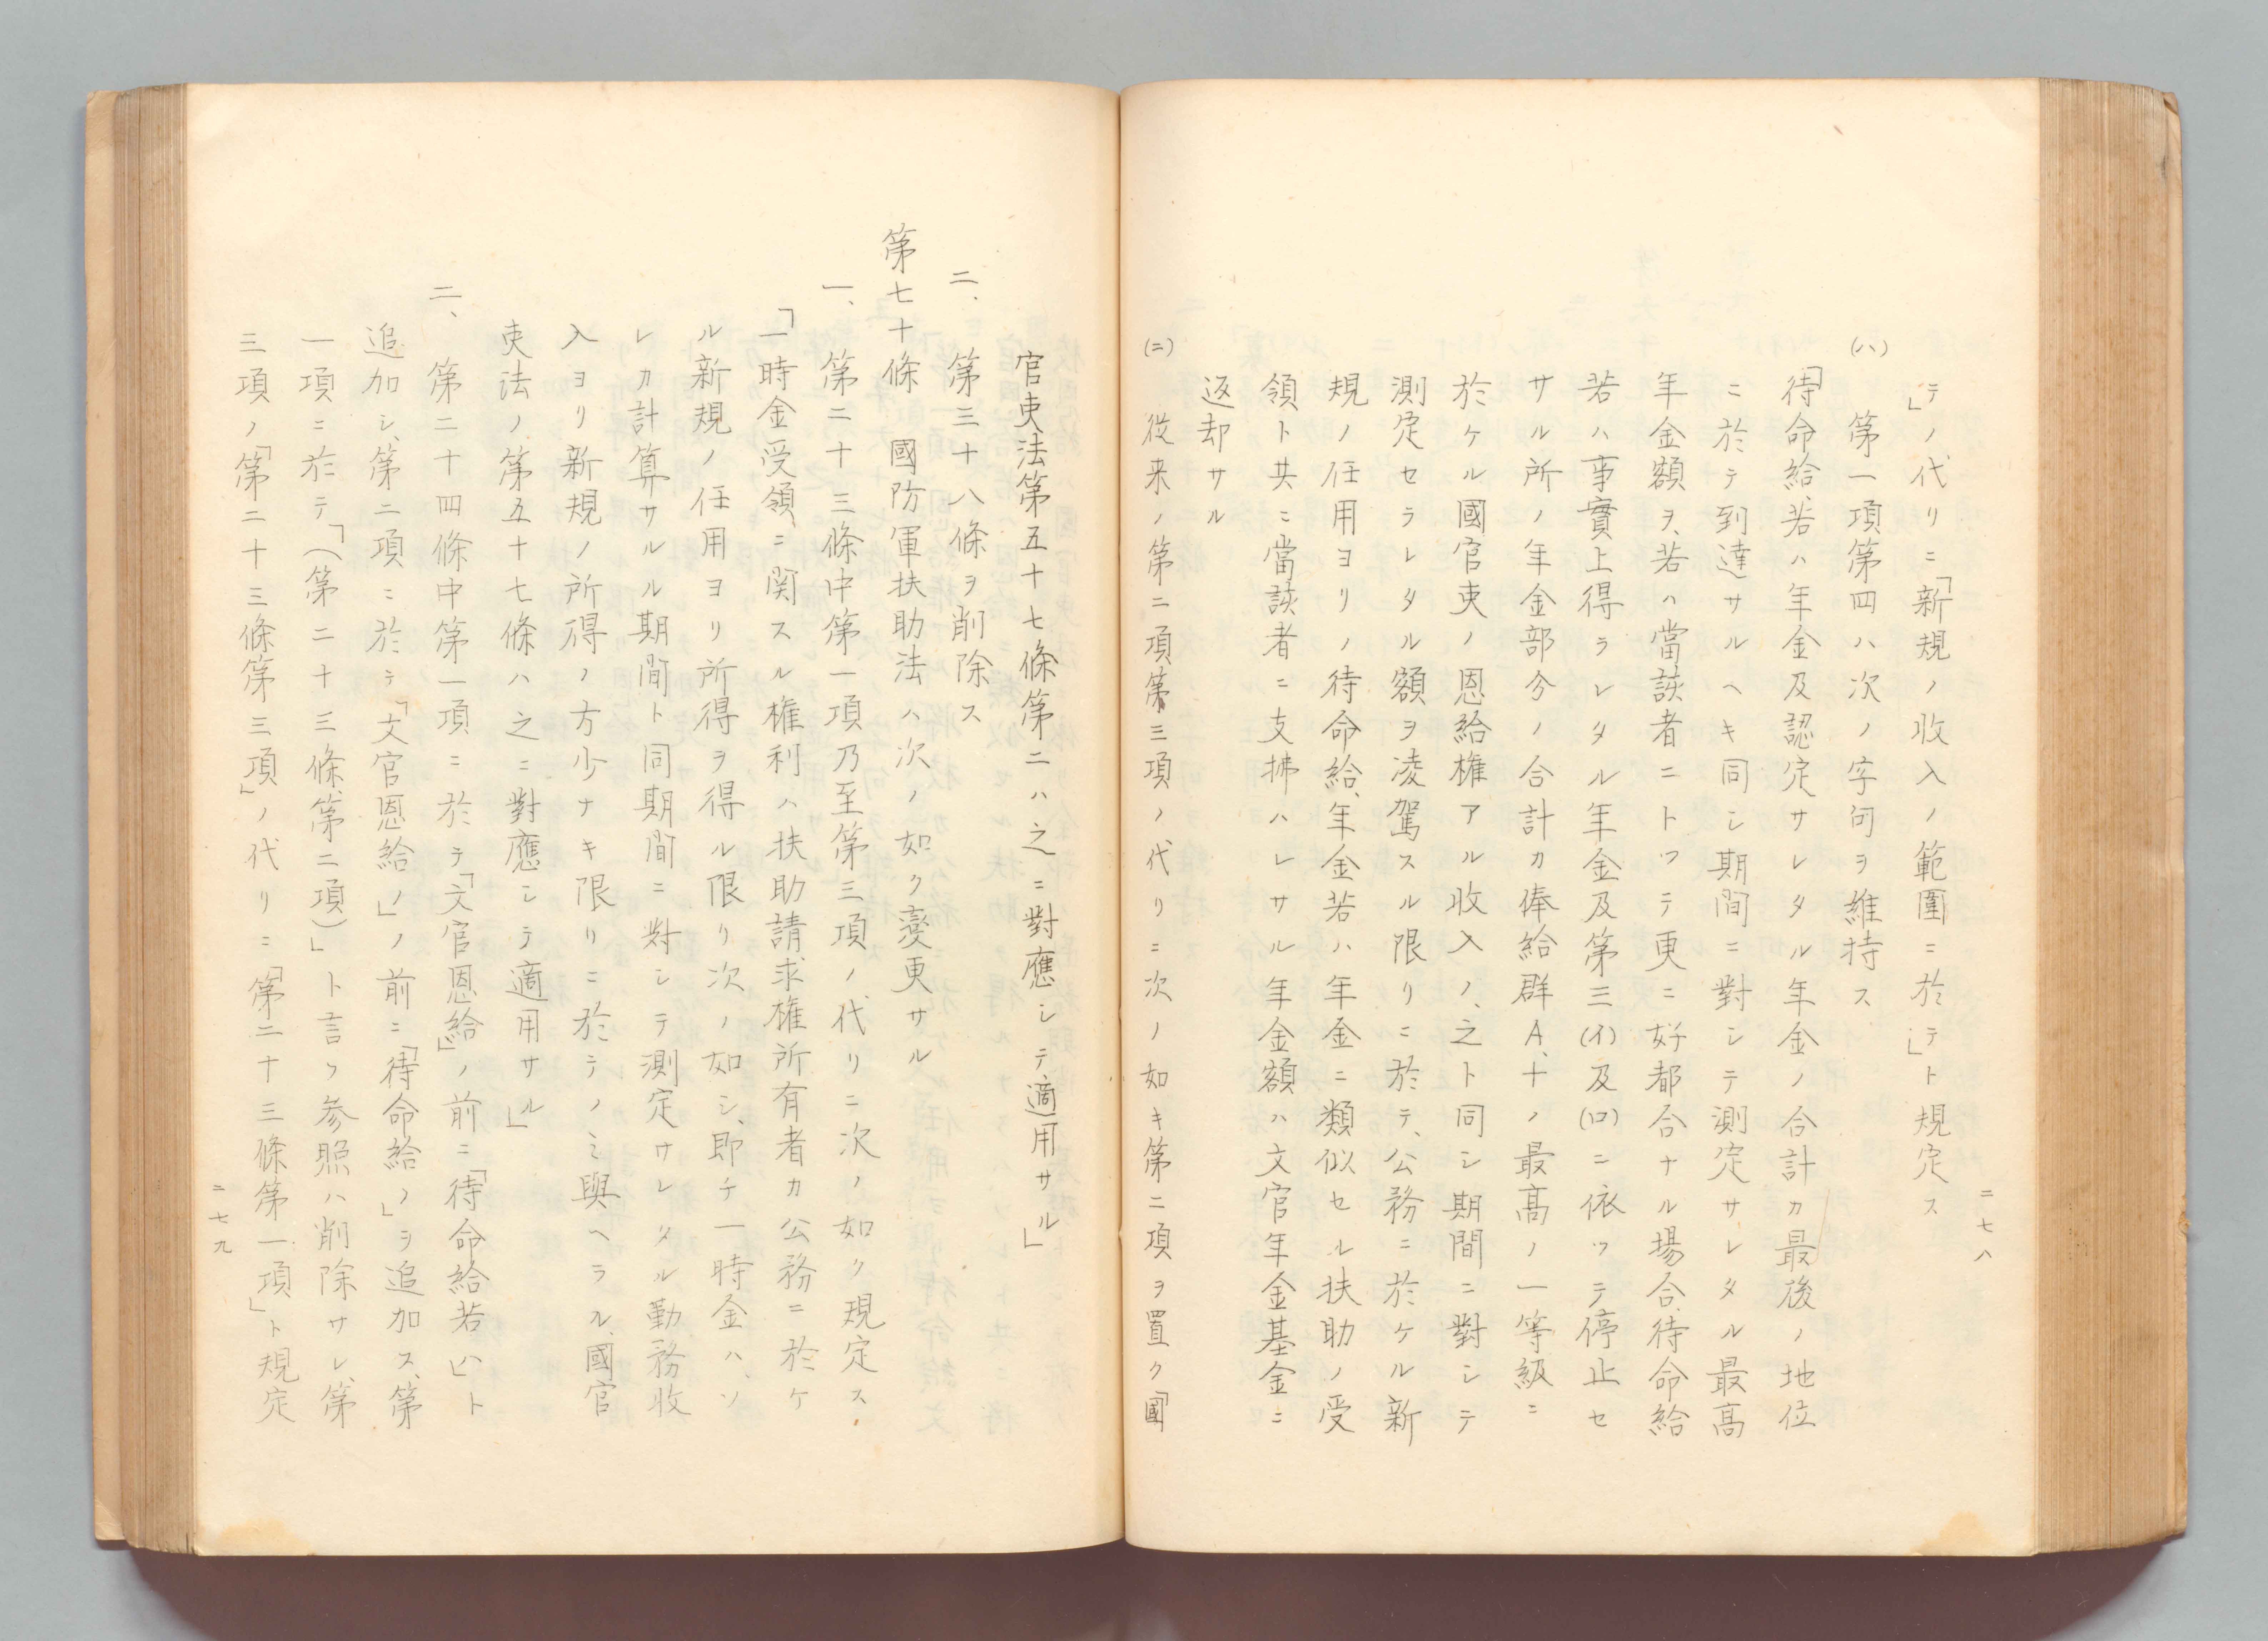 二七八
テ」ノ代リニ「新規ノ收入ノ範圍ニ於テ」ト規定ス
(ハ) 第一項第四ハ次ノ字句ヲ維持ス
「待命給、若ハ年金及認定サレタル年金ノ合計カ最後ノ地位
ニ於テ到達サルヘキ同シ期間ニ對シテ測定サレタル最高
年金額ヲ、若ハ當該者ニトツテ更ニ好都合ナル場合、待命給
若ハ事實上得ラレタル年金及第三(イ)及(ロ)ニ依ツテ停止セ
サル所ノ年金部分ノ合計カ俸給群A、十ノ最高ノ一等級ニ
於ケル國官吏ノ恩給権アル收入ノ、之ト同シ期間ニ對シテ
測定セラレタル額ヲ凌駕スル限リニ於テ、公務ニ於ケル新
規ノ任用ヨリノ待命給、年金若ハ年金ニ類似セル扶助ノ受
領ト共ニ當該者ニ支拂ハレサル年金額ハ文官年金基金ニ
返却サル
(ニ) 從来ノ第二項第三項ノ代リニ次ノ如キ第二項ヲ置ク「國
官吏法第五十七條第二ハ之ニ對應シテ適用サル」
二、第三十八條ヲ削除ス
第七十條 國防軍扶助法ハ次ノ如ク変更サル
一、第二十三條中第一項乃至第三項ノ代リニ次ノ如ク規定ス、
「一時金受領ニ関スル権利ハ扶助請求権所有者カ公務ニ於ケ
ル新規ノ任用ヨリ所得ヲ得ル限リ次ノ如シ、即チ一時金ハ、ソ
レカ計算サルル期間ト同期間ニ對シテ測定サレタル勤務收
入ヨリ新規ノ所得ノ方少ナキ限リニ於テノミ與ヘラル、國官
吏法ノ第五十七條ハ之ニ對應シテ適用サル」
二、第二十四條中第一項ニ於テ「文官恩給」ノ前ニ「待命給若ハ」ト
追加シ、第二項ニ於テ「文官恩給ノ」ノ前ニ「待命給ノ」ヲ追加ス、第
一項ニ於テ「(第二十三條、第二項)」ト言フ参照ハ削除サレ、第
三項ノ「第二十三條第三項」ノ代リニ「第二十三條第一項」ト規定
二七九